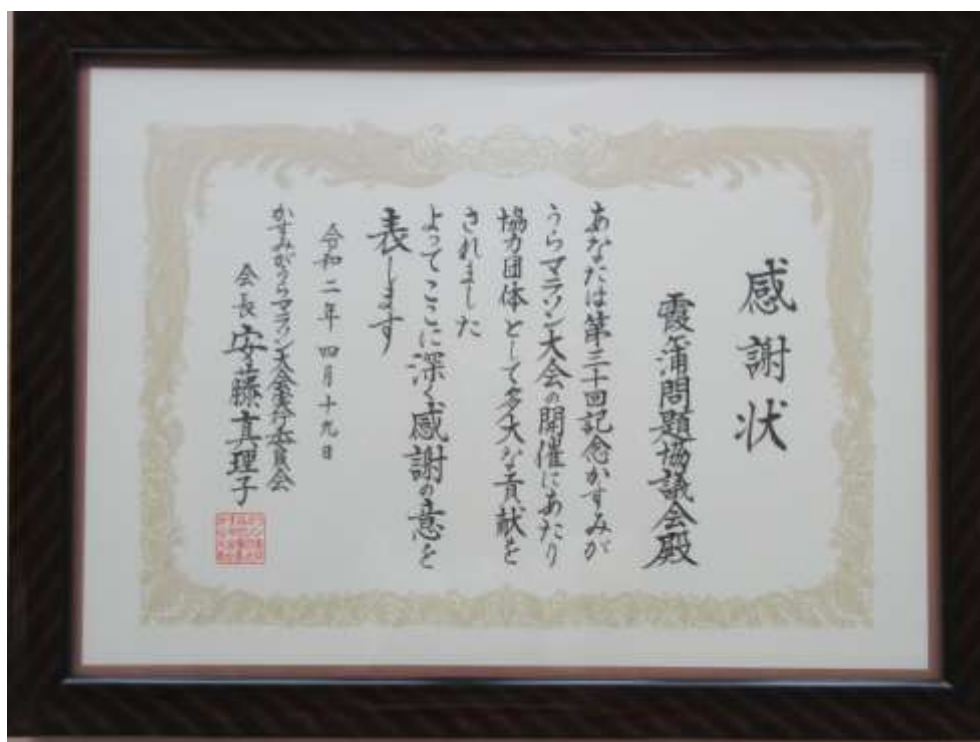 感謝状
霞ヶ浦問題協議会殿
あなたは第三十回記念かすみが
うらマラソン大会の開催にあたり
協力団体として多大な貢献を
されました
よってここに深く感謝の意を
表します
令和二年四月十九日
かすみがうらマラソン大会実行委員会
会長 安藤真理子